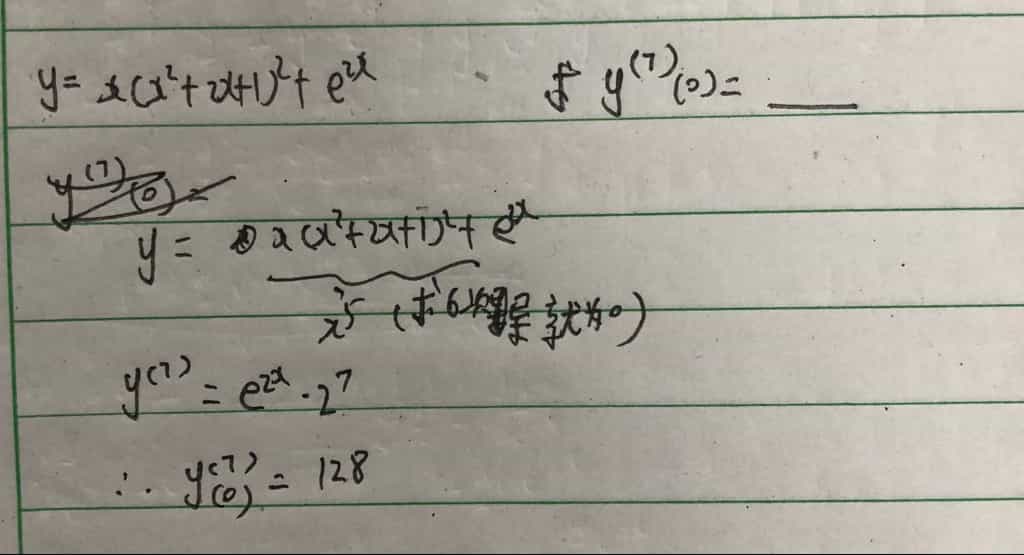 y = x(x²+2x+1)²+ e²ˣ 求 y⁽⁷⁾(0) = ____
y⁽⁷⁾(0) =
y = x(x²+2x+1)²+ e²ˣ
x⁵ (求6次导就为0)
y⁽⁷⁾ = e²ˣ · 2⁷
∴ y⁽⁷⁾(0) = 128